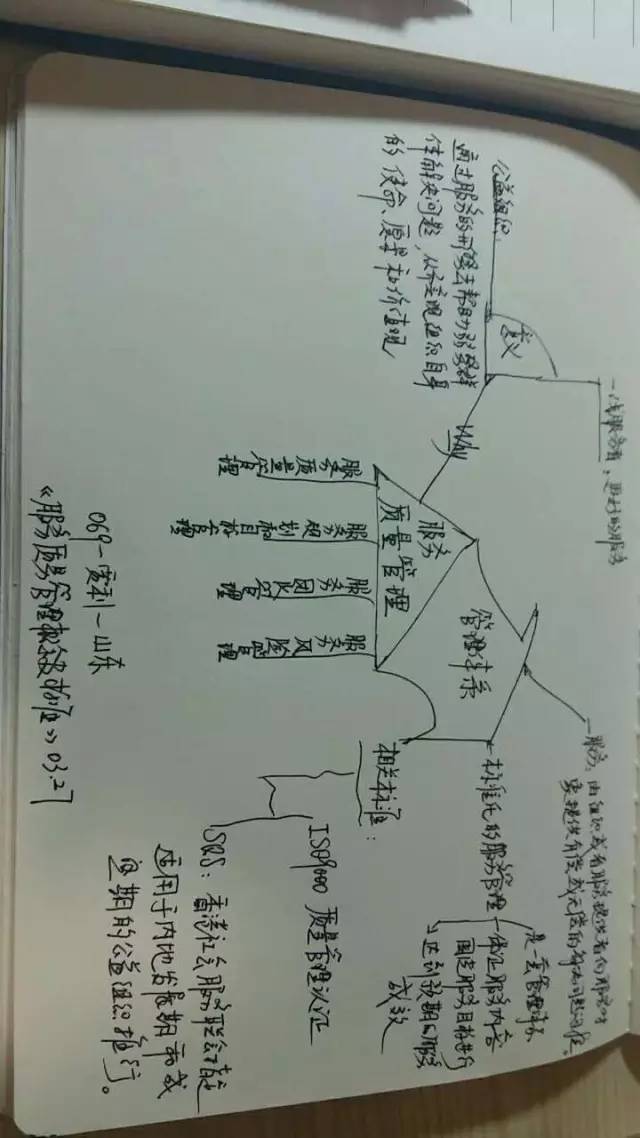 一线服务者，更好的服务
意义
公益组织：
通过服务的形式去帮助弱势群
体解决问题，从而实现组织自身
的使命、愿景和价值观
Why
服务
质量管理
服务质量管理
服务规划和目标管理
服务团队管理
服务风险管理
管理体系
一服务，由组织或者服务提供者向服务对
象提供有偿或无偿的
一标准化的服务管理
是一套管理体系
一保证服务内容
围绕服务目标进行
达到预期的服务
成效
相关标准：
ISO9000 质量管理认证
SRS：香港社会服务联会
适用于内地发展期和成
熟期的公益组织推行。
069-霍利-山东
《服务质量管理概念及标准》03.27